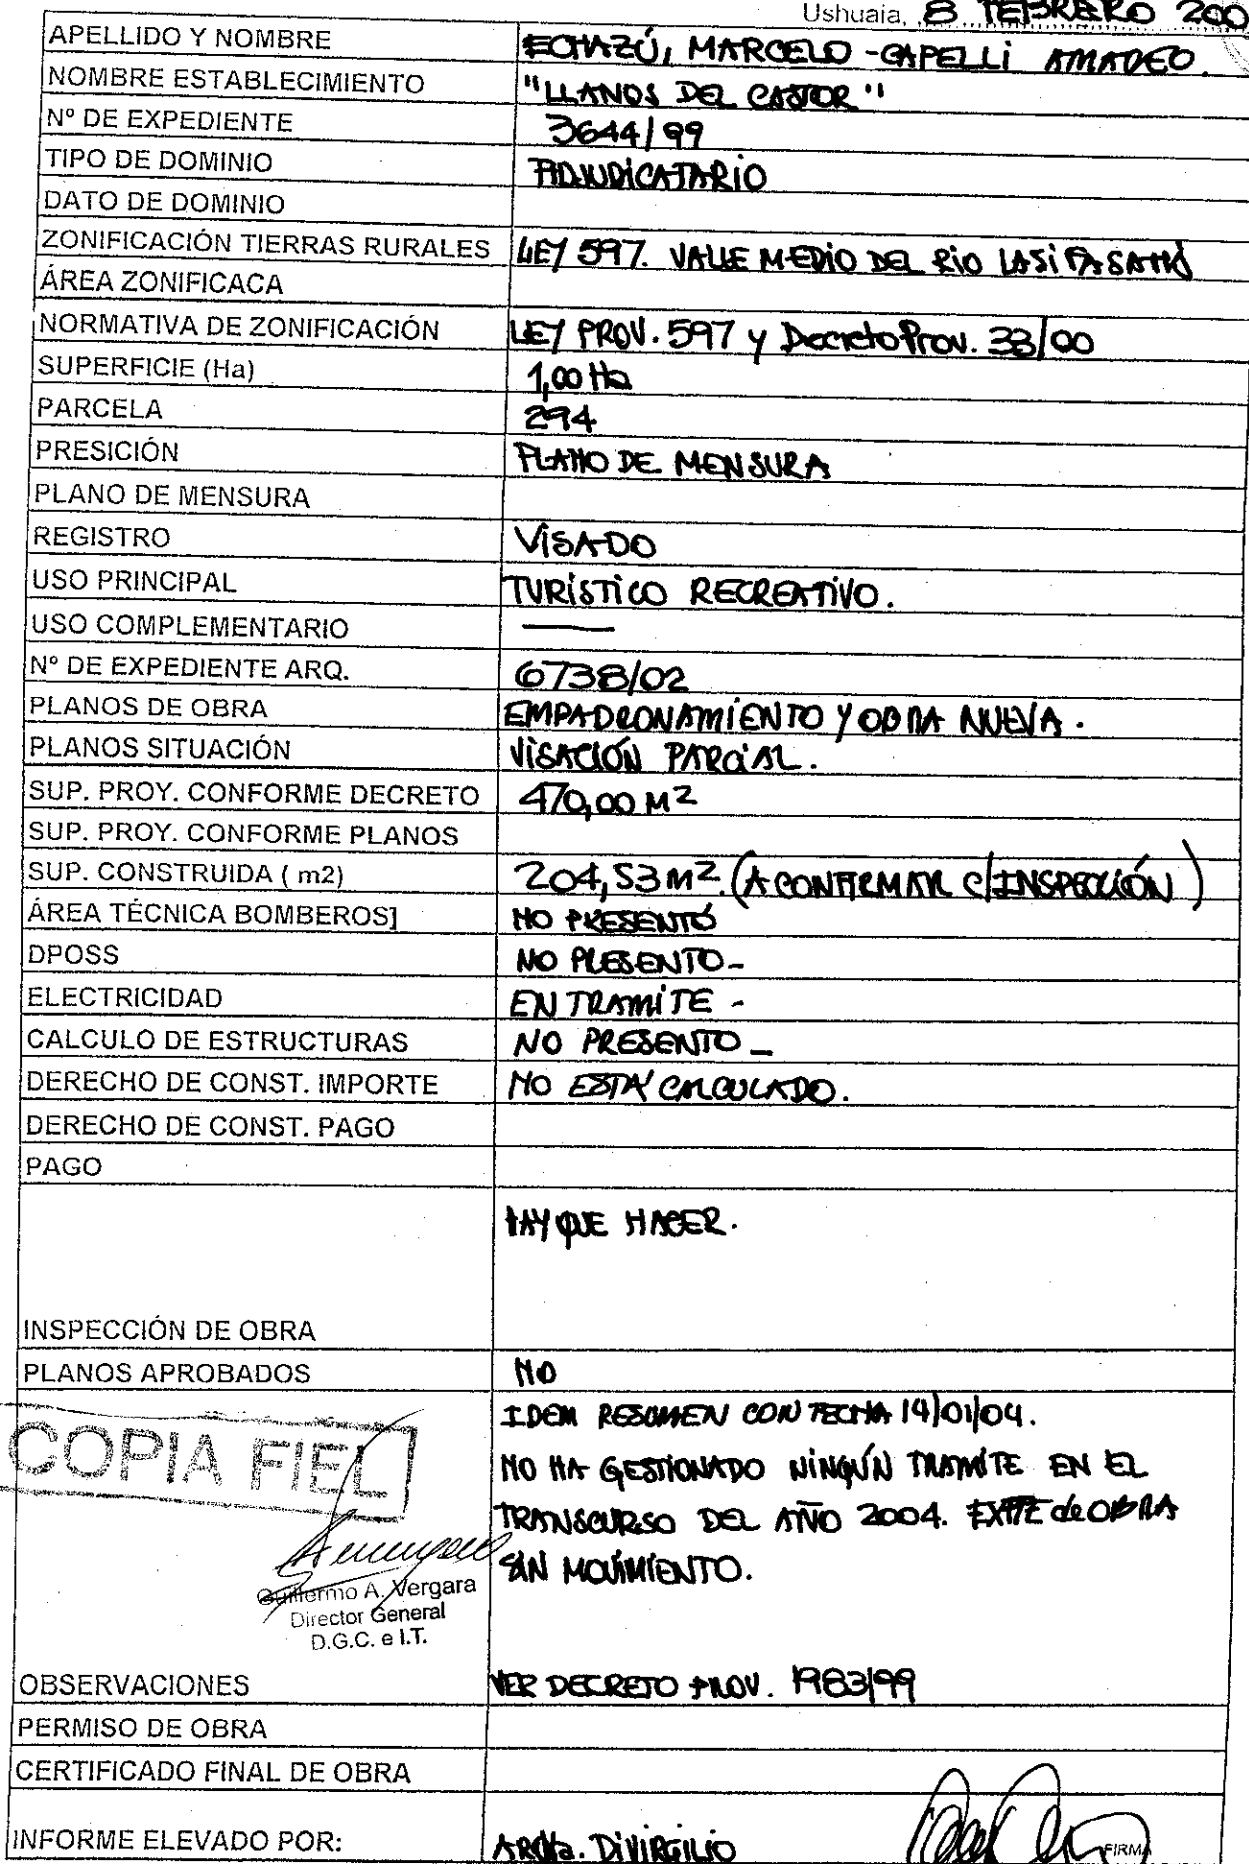 Ushuaia, 8 FEBRERO 200
APELLIDO Y NOMBRE ECHAZÚ, MARCELO - CAPELLI AMADEO.
NOMBRE ESTABLECIMIENTO "LLANOS DEL CASTOR"
Nº DE EXPEDIENTE 3644/99
TIPO DE DOMINIO ADJUDICATARIO
DATO DE DOMINIO
ZONIFICACIÓN TIERRAS RURALES LEY 597. VALLE MEDIO DEL RIO LASIFASAHJ
ÁREA ZONIFICACA
NORMATIVA DE ZONIFICACIÓN LEY PROV. 597 y Decreto Prov. 33/00
SUPERFICIE (Ha) 1,00 Ha
PARCELA 294
PRESICIÓN PLANO DE MENSURA
PLANO DE MENSURA
REGISTRO VISADO
USO PRINCIPAL TURISTICO RECREATIVO.
USO COMPLEMENTARIO —
Nº DE EXPEDIENTE ARQ. 6738/02
PLANOS DE OBRA EMPADRONAMIENTO Y OBRA NUEVA.
PLANOS SITUACIÓN VISACIÓN PARCIAL.
SUP. PROY. CONFORME DECRETO 470,00 M2
SUP. PROY. CONFORME PLANOS
SUP. CONSTRUIDA ( m2) 204,53 M2. (A CONFIRMAR C/INSPECCIÓN)
ÁREA TÉCNICA BOMBEROS] NO PRESENTÓ
DPOSS NO PRESENTO -
ELECTRICIDAD EN TRAMITE -
CALCULO DE ESTRUCTURAS NO PRESENTO -
DERECHO DE CONST. IMPORTE NO ESTA' CALCULADO.
DERECHO DE CONST. PAGO
PAGO
HAY QUE HACER.
INSPECCIÓN DE OBRA
PLANOS APROBADOS NO
IDEM RESUMEN CON FECHA 14/01/04.
COPIA FIEL
NO HA GESTIONADO NINGÚN TRAMITE EN EL
TRANSCURSO DEL AÑO 2004. EXPTE de OBRA
SIN MOVIMIENTO.
Guillermo A. Vergara
Director General
D.G.C. e I.T.
OBSERVACIONES VER DECRETO PROV. 1983/99
PERMISO DE OBRA
CERTIFICADO FINAL DE OBRA
INFORME ELEVADO POR: ARQta. DIVIRGILIO
FIRMA